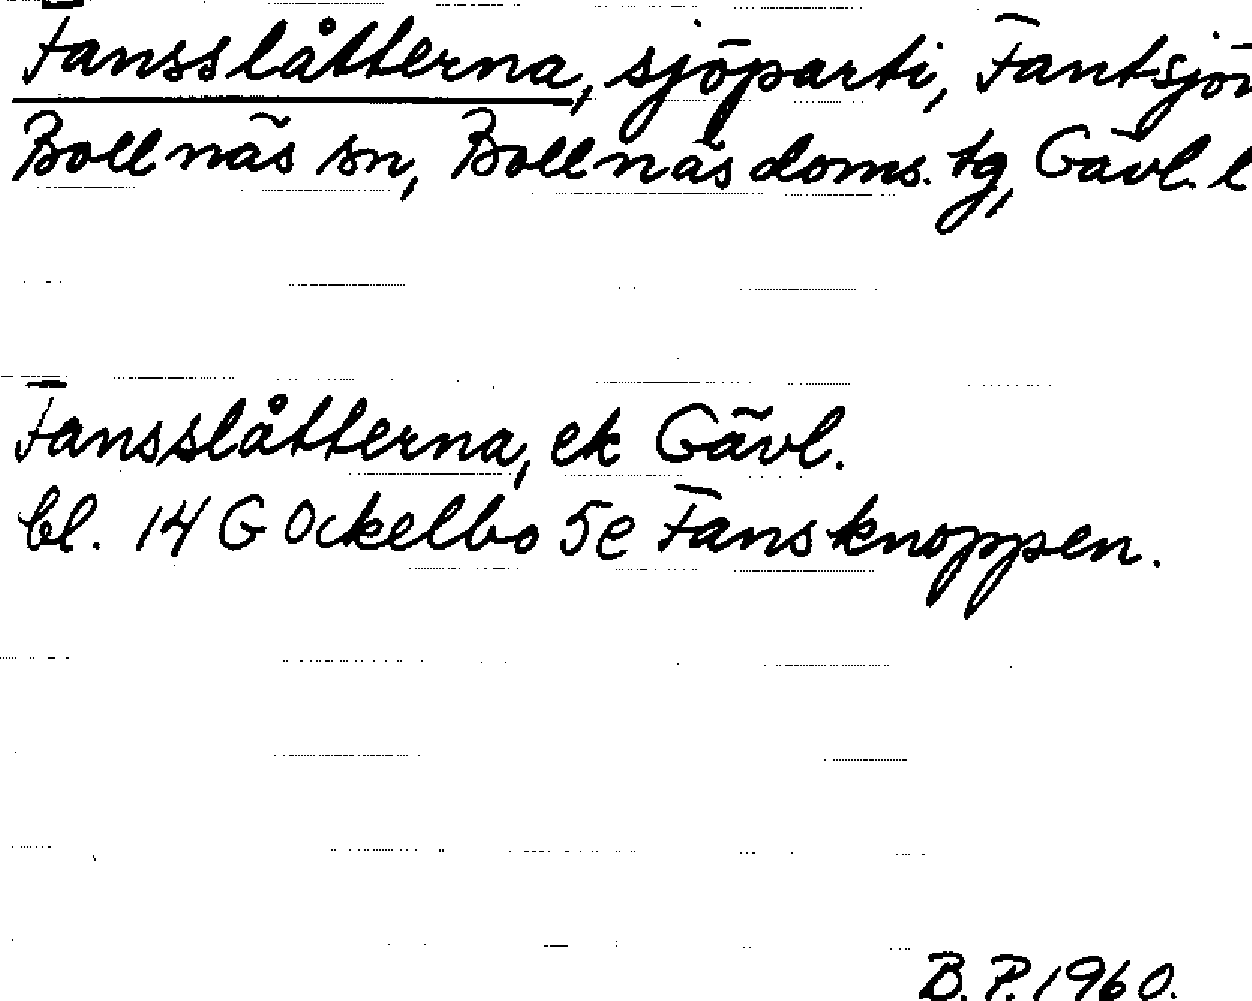 Fansslåtterna, sjöparti, Fantsjön
Bollnäs sn, Bollnäs doms. tg, Gävl. l
Fansslåtterna, ek Gävl.
bl. 14 G Ockelbo 5e Fansknoppen.
B. P. 1960.